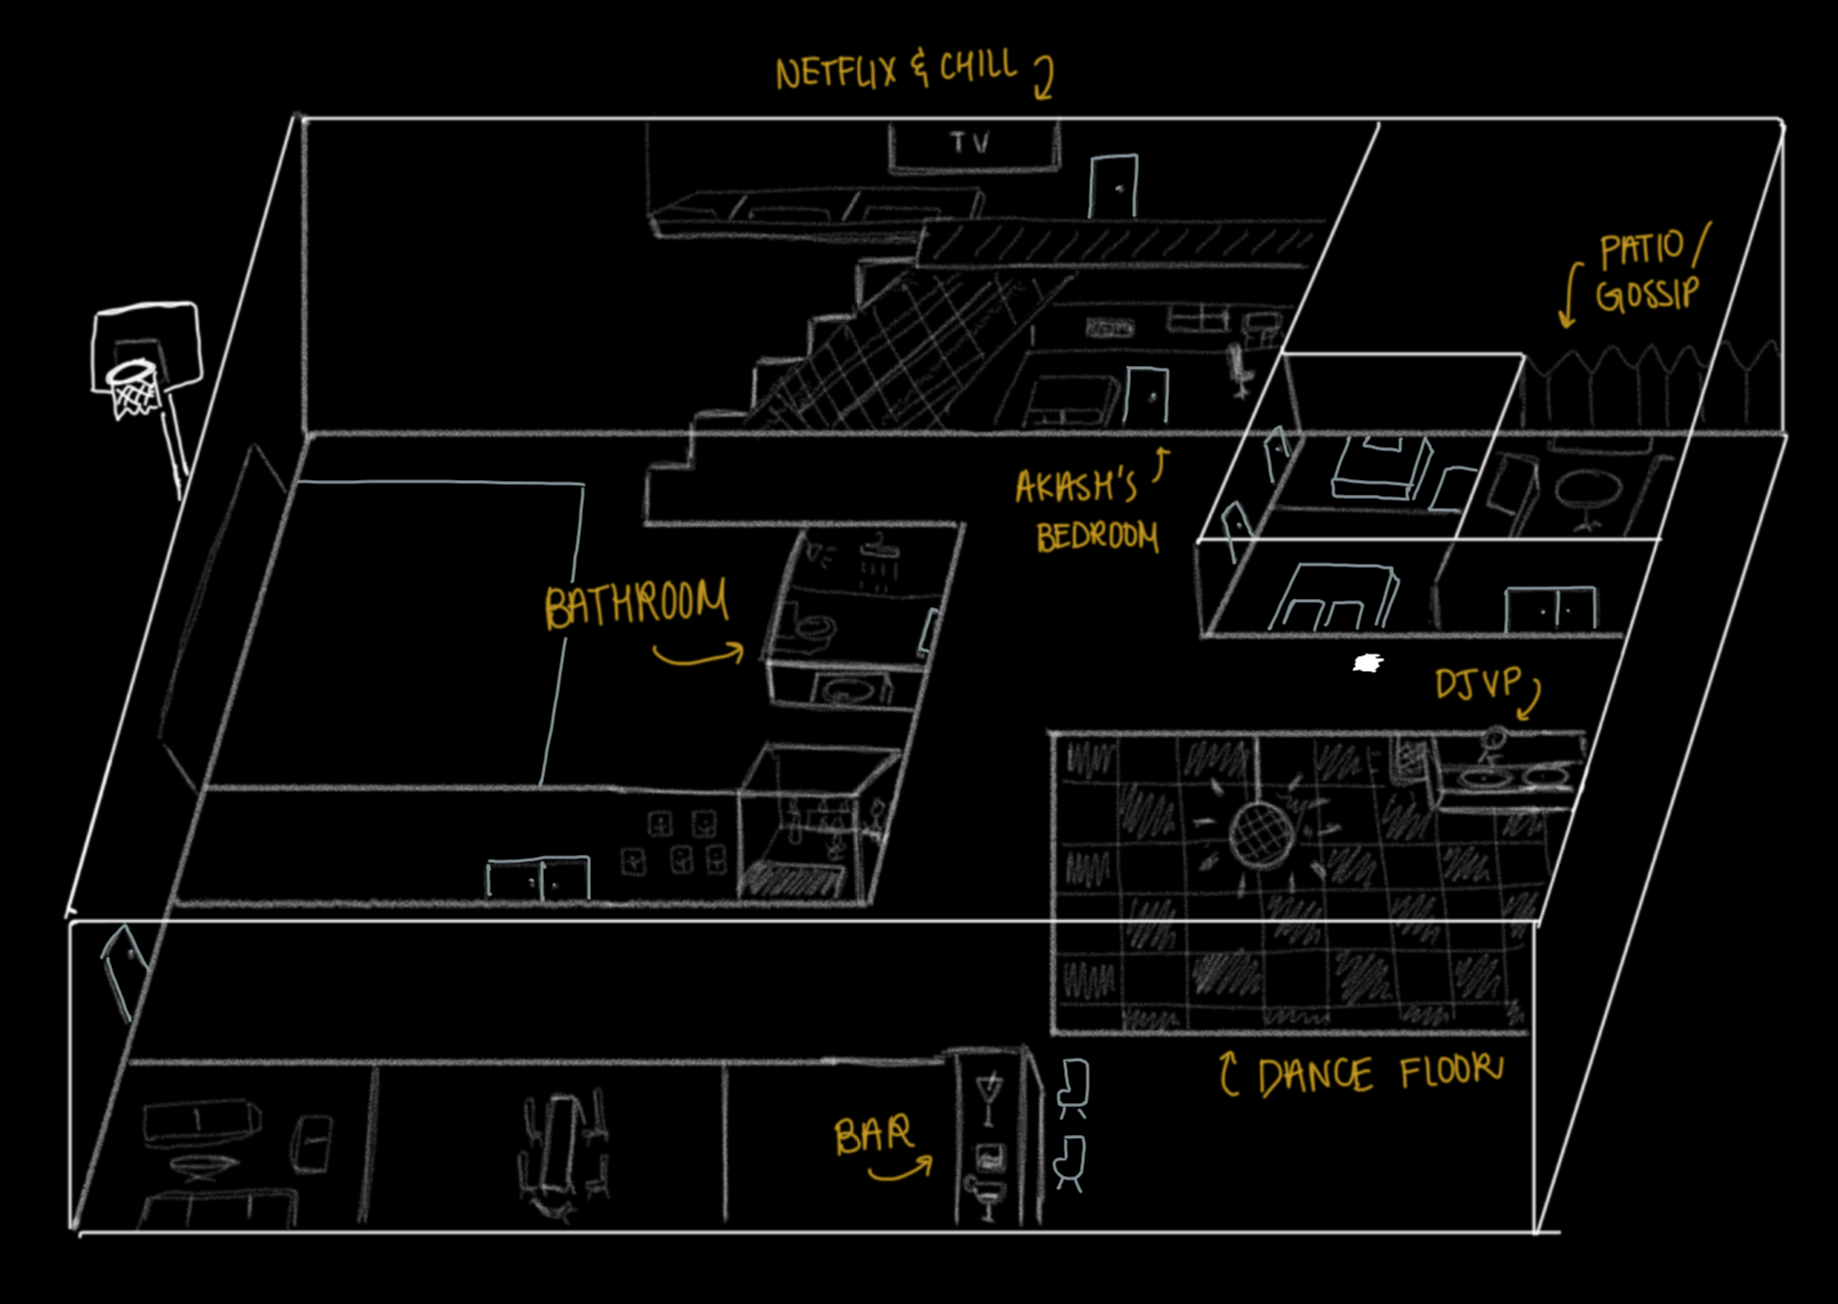 NETFLIX & CHILL
TV
PATIO/
GOSSIP
AKASH'S
BEDROOM
BATHROOM
DJVP
DANCE FLOOR
BAR